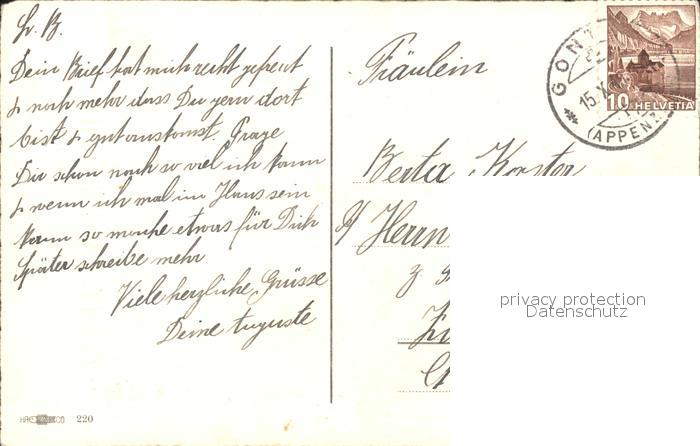 L. B.
Dein Brief hat mich recht gefreut
& noch mehr dass Du gern dort
bist & gut auskomst. Frage
Dir schon noch so viel ich kann
& wenn ich mal im Haus sein
kann so mache etwas für Dich
Später schreibe mehr
Viele herzliche Grüsse
Deine Auguste
220
Fräulein
Berta
Herrn
GONT
15. X
(APPENZ
10 HELVETIA
privacy protection
Datenschutz